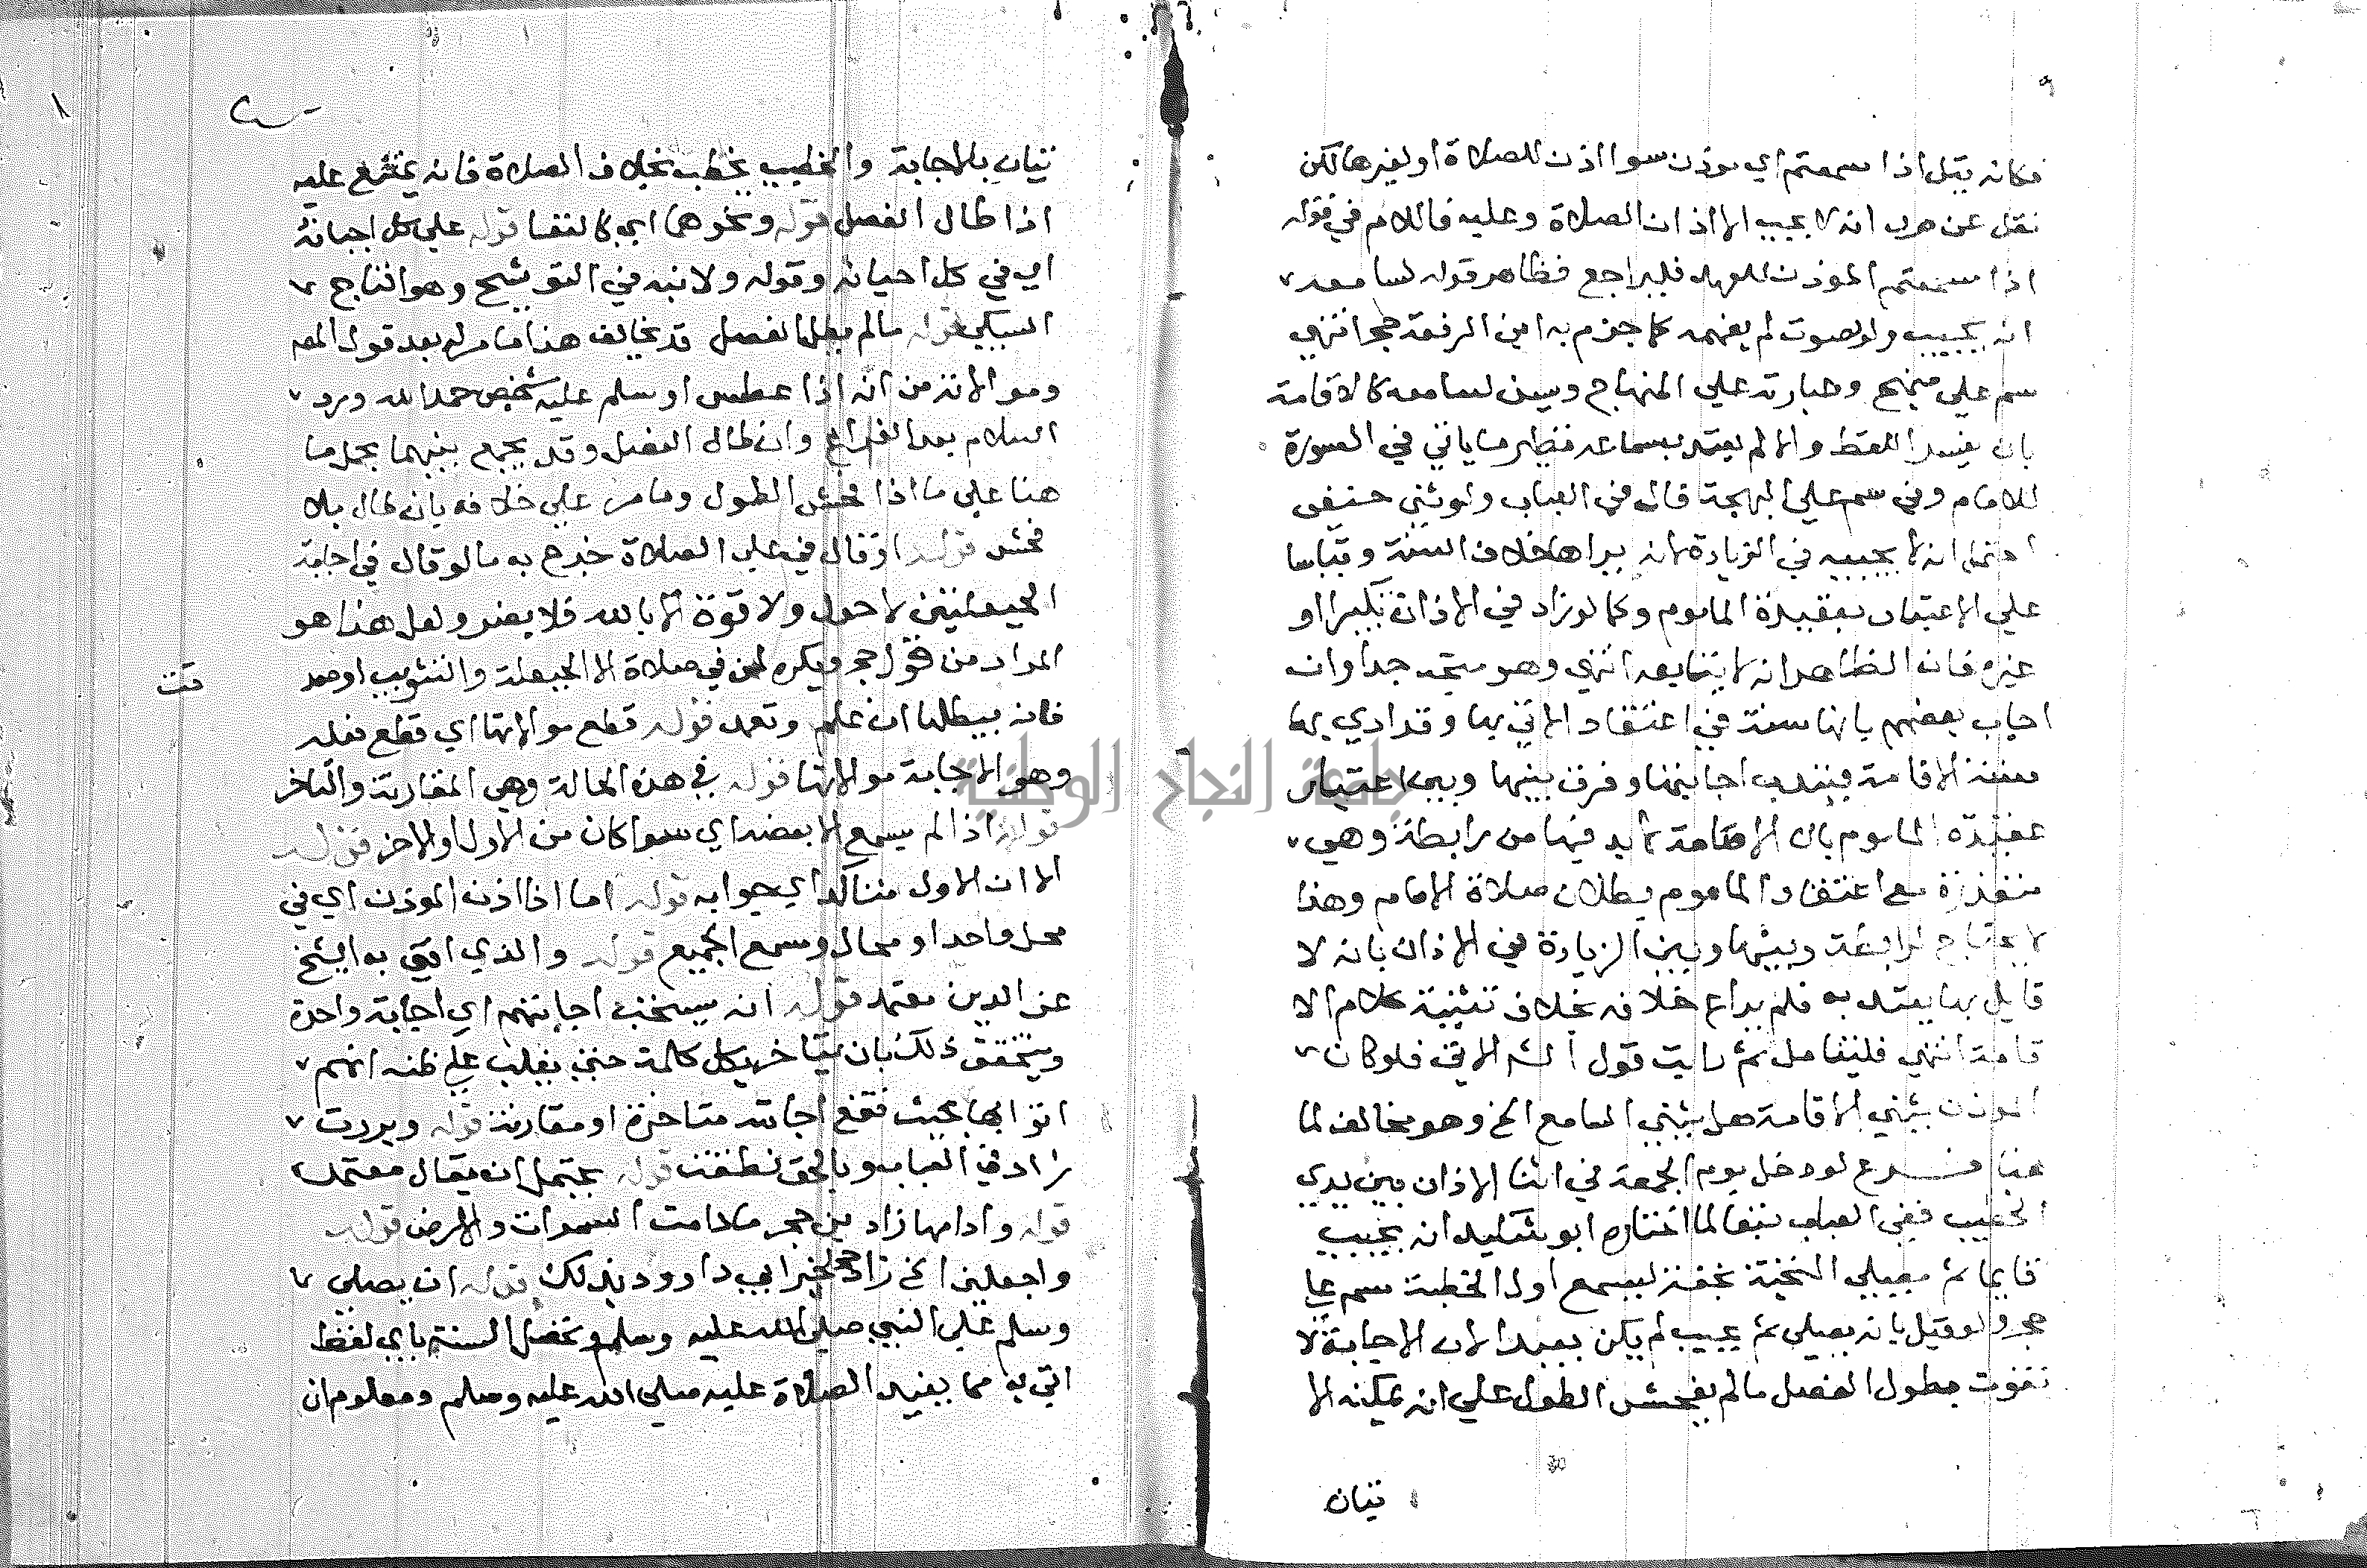 فكانه قيل اذا سمعتم اي موذن سوا اذن للصلاة او لغيرها لكن
نقل عن م ر انه لا يجيب الا اذان الصلاة وعليه فاللام في قوله
اذا سمعتم الموذن للعهد فليراجع فظاهر قوله لسامعه
انه يجيب ولو لصوت لم يفهمه كما جزم به ابن الرفعة حجر انتهي
سم علي منهج وعبارته علي المنهاج ويسن لسامعه كالاقامة
بان يفسر اللفظ والا لم يعتد بسماعه نظير ما ياتي في السورة
للامام وفي سم علي البهجة قال في العباب ولو ثني حنفي
احتمل انه لا يجيبه في الزيادة لانه يراها خلاف السنة وقياسا
علي الاعتبار بعقيدة الماموم وكما لو زاد في الاذان تكبيرا او
غيره فان الظاهر انه لا يتابعه انتهي وهو متجه جدا وان
اجاب بعضهم بانها سنة في اعتقاد الاتي بها وقد ادي بها
سنة الاقامة فيندب اجابتها وفرق بينها وبين اعتبار
عقيدة الماموم بان الامامة لا بد فيها من رابطة وهي
متعذرة مع اعتقاد الماموم بطلان صلاة الامام وهذا
لا يحتاج لرابطة وبينها وبين الزيادة في الاذان بانه لا
قايل بها يعتد به فلم يراع خلافه بخلاف تثنية كلام الا
قامة انتهي فليتامل ثم رايت قول الشر الاتي فلو كان
الموذن يثني الاقامة هل يثني السامع الخ وهو مخالف لما
هنا فرع لو دخل يوم الجمعة في اثنا الاذان بين يدي
الخطيب ففي العباب تبعا لما اختاره ابو شكيل انه يجيب
قايما ثم يصلي التحية بخفة ليسمع اول الخطبة سم علي
حجر ولو قيل بانه يصلي ثم يجيب لم يكن بعيدا لان الاجابة لا
تفوت بطول الفصل ما لم يفحش الطول علي انه يمكنه الا
تيان
تيان بالاجابة والخطيب يخطب بخلاف الصلاة فانه يمتنع عليه
اذا طال الفصل قوله ونحوهما اي كالنفسا قوله علي كل احيانه
اي في كل احيانه وقوله ولابنه في التوشيح وهو التاج
السبكي قوله ما لم يطل الفصل قد يخالف هذا ما مر له بعد قول المص
وموالاته من انه اذا عطس او سلم عليه شخص حمد الله ورد
السلام بعد الفراغ وان طال الفصل وقد يجمع بينهما بحمل ما
هنا علي ما اذا فحش الطول وما مر علي خلافه بان طال بلا
فحش قوله او قال في علي الصلاة خرج به ما لو قال في اجابة
الحيعلتين لا حول ولا قوة الا بالله فلا يضر ولعل هذا هو
المراد من قول حجر ويكره لمن في صلاة الا الحيعلة والتثويب او صد
قت
فانه يبطلها ان علم وتعمد قوله قطع موالاتها اي قطع فعله
وهو الاجابة موالاتها قوله في هذه الحالة وهي المقارنة والتاخر
قوله اذا لم يسمع الا بعضه اي سوا كان من الاول او الاخر قوله
الا ان الاول متاكد اي جوابه قوله اما اذا اذن الموذن اي في
محل واحد او محال وسمع الجميع قوله والذي افتي به الشيخ
عز الدين معتمد قوله انه يستحب اجابتهم اي اجابة واحدة
ويتحقق ذلك بان يتاخر بكل كلمة حتي يغلب علي ظنه انهم
اتوا بها بحيث تقع اجابته متاخرة او مقارنة قوله وبررت
زاد في العباب وبالحق نطقت قوله يحتمل ان يقال معتمد
قوله وادامها زاد بن حجر ما دامت السموات والارض قوله
واجعلني الخ زاد حجر لخبر ابي داوود بذلك قوله ان يصلي
وسلم علي النبي صلي الله عليه وسلم وتحصل السنة باي لفظ
اتي به مما يفيد الصلاة عليه صلي الله عليه وسلم ومعلوم ان
جامعة النجاح الوطنية